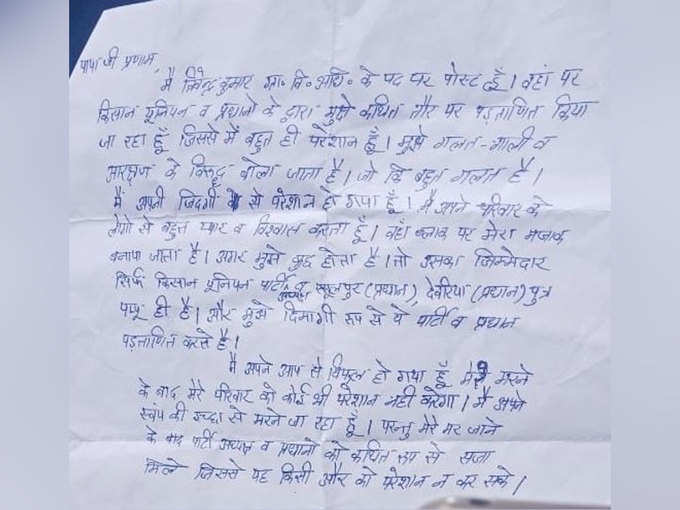 पापा जी प्रणाम,
मैं जितेन्द्र कुमार ग्रा० वि० अधि० के पद पर पोस्ट हूँ। वहां पर
किसान यूनियन व प्रधानो के द्वारा मुझे कथित तौर पर पड़ताणित किया
जा रहा हूँ जिससे में बहुत ही परेशान हूँ। मुझे गलत-गाली व
आरक्षण के विरूद्ध बोला जाता है। जो कि बहुत गलत है।
मैं अपनी जिंदगी से परेशान हो गया हूँ। मैं अपने परिवार के
लोगो से बहुत प्यार व विश्वास करता हूँ। वहाँ ब्लाक पर मेरा मजाक
बनाया जाता है। अगर मुझे कुछ होता है। तो उसका जिम्मेदार
सिर्फ किसान यूनियन पार्टी अध्यक्ष व रसूलपुर (प्रधान), देवरिया (प्रधान) पुत्र
पप्पू ही है। और मुझे दिमागी रूप से ये पार्टी व प्रधान
पड़ताणित करते है।
मैं अपने आप से विफूल हो गया हूँ। मेरे मरने
के बाद मेरे परिवार को कोई भी परेशान नही करेगा। मैं अपने
स्वंय की इच्छा से मरने जा रहा हूँ। परन्तु मेरे मर जाने
के बाद पार्टी अध्यक्ष व प्रधानो को कथित रूप से सजा
मिले जिससे यह किसी और को परेशान न कर सके।